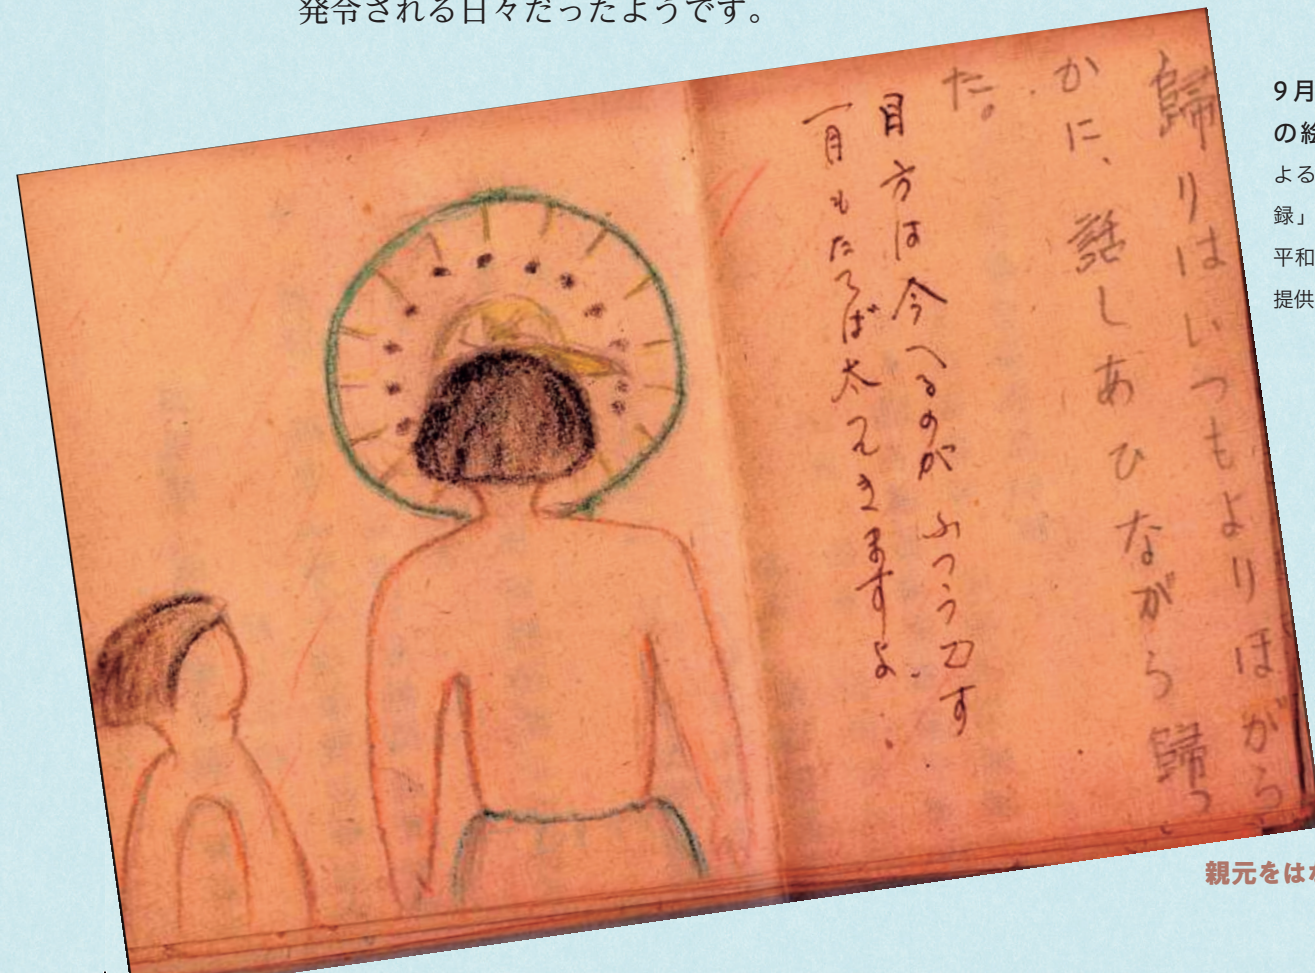 発令される日々だったようです。
歸りはいつもよりほがら
かに、話しあひながら歸つ
た。
目方は今へるのがふつうです
一月もたてば太ってきますよ。
9月
の絵
よる
録」
平和
提供
親元をは